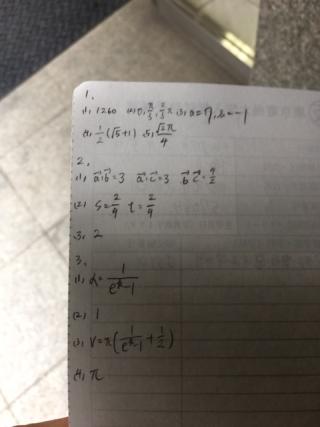 1.
(1) 1260 (2) 0, π/3, 2/3 π (3) a=7, b=-1
(4) 1/2 (√5+1) (5) √2π/4
2.
(1) a⃗·b⃗=3 a⃗·c⃗=3 b⃗·c⃗=9/2
(2) s=2/9 t=2/9
(3) 2
3.
(1) α=1/(e^π-1)
(2) 1
(3) V=π(1/(e^π-1)+1/2)
(4) π